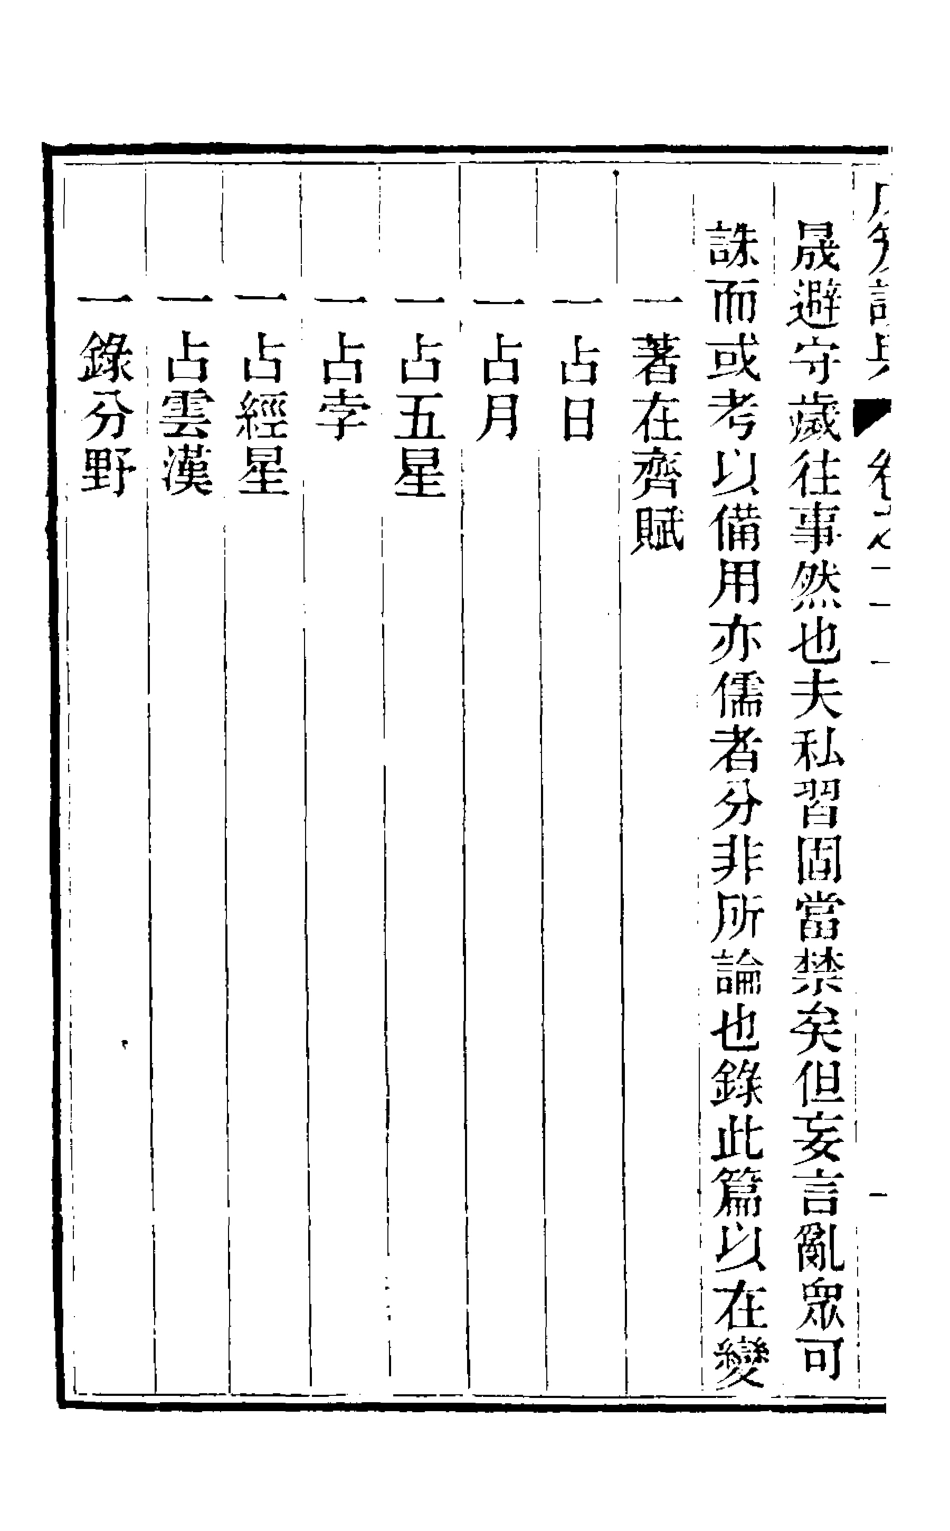 晟避守歲往事然也夫私習固當禁矣但妄言亂眾可
誅而或考以備用亦儒者分非所論也錄此篇以在變
一著在齊賦
一占日
一占月
一占五星
一占孛
一占經星
一占雲漢
一錄分野